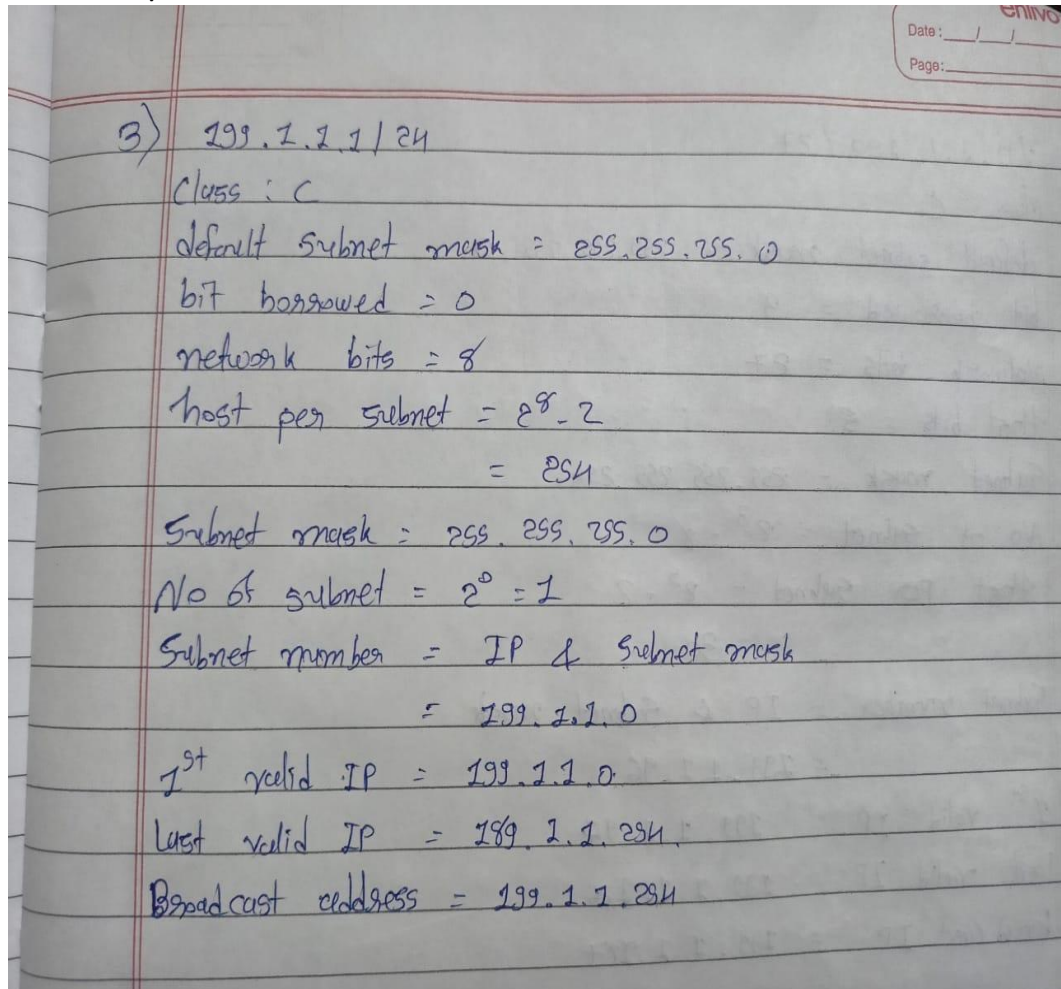 enlivo
Date: __/__/__
Page: ____
3) 199.1.1.1 / 24
Class : C
default subnet mask = 255.255.255.0
bit borrowed = 0
network bits = 8
host per subnet = 2⁸ - 2
= 254
Subnet mask = 255.255.255.0
No of subnet = 2⁰ = 1
Subnet number = IP & Subnet mask
= 199.1.1.0
1st valid IP = 199.1.1.0
Last valid IP = 189.1.1.254.
Broadcast address = 199.1.1.254